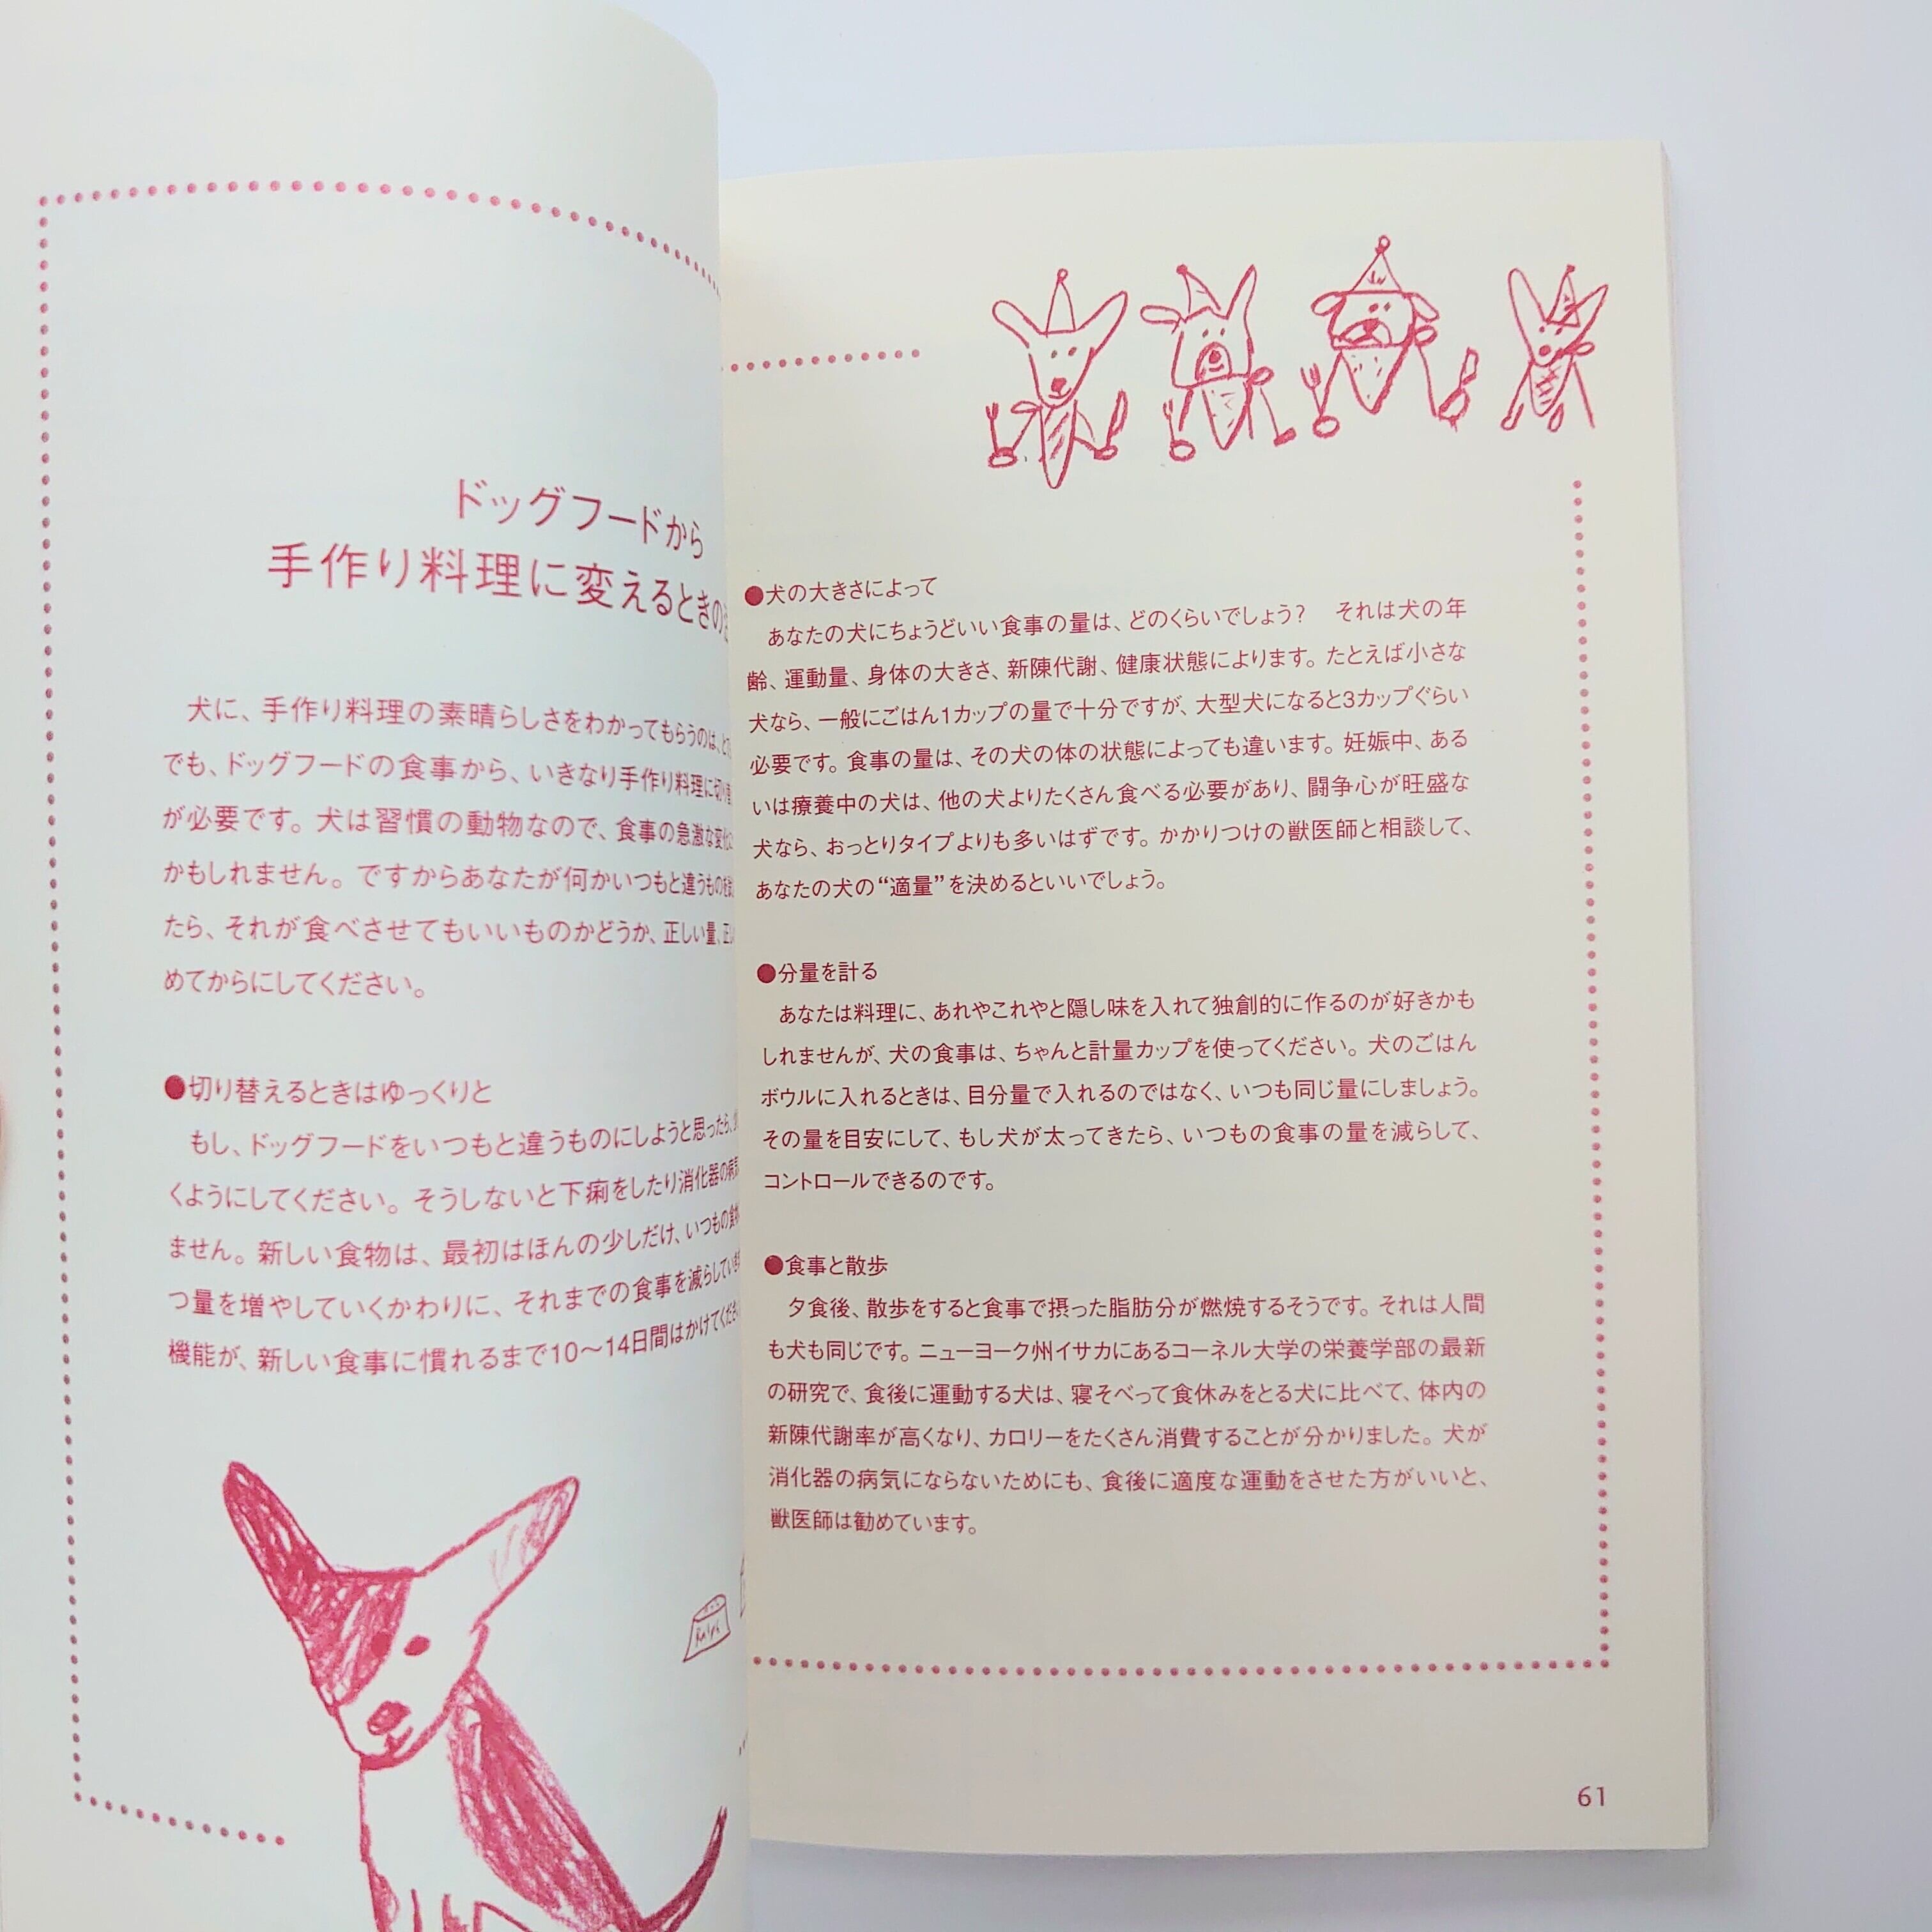 ドッグフードから
手作り料理に変えるときの
犬に、手作り料理の素晴らしさをわかってもらうのは、
でも、ドッグフードの食事から、いきなり手作り料理に切り
が必要です。犬は習慣の動物なので、食事の急激な変化
かもしれません。ですからあなたが何かいつもと違うものを
たら、それが食べさせてもいいものかどうか、正しい量、
めてからにしてください。
●切り替えるときはゆっくりと
もし、ドッグフードをいつもと違うものにしようと思ったら、
くようにしてください。そうしないと下痢をしたり消化器の病
ません。新しい食物は、最初はほんの少しだけ、いつもの食
つ量を増やしていくかわりに、それまでの食事を減らしてい
機能が、新しい食事に慣れるまで10〜14日間はかけてくだ
Ralph
●犬の大きさによって
あなたの犬にちょうどいい食事の量は、どのくらいでしょう？ それは犬の年
齢、運動量、身体の大きさ、新陳代謝、健康状態によります。たとえば小さな
犬なら、一般にごはん1カップの量で十分ですが、大型犬になると3カップぐらい
必要です。食事の量は、その犬の体の状態によっても違います。妊娠中、ある
いは療養中の犬は、他の犬よりたくさん食べる必要があり、闘争心が旺盛な
犬なら、おっとりタイプよりも多いはずです。かかりつけの獣医師と相談して、
あなたの犬の“適量”を決めるといいでしょう。
●分量を計る
あなたは料理に、あれやこれやと隠し味を入れて独創的に作るのが好きかも
しれませんが、犬の食事は、ちゃんと計量カップを使ってください。犬のごはん
ボウルに入れるときは、目分量で入れるのではなく、いつも同じ量にしましょう。
その量を目安にして、もし犬が太ってきたら、いつもの食事の量を減らして、
コントロールできるのです。
●食事と散歩
夕食後、散歩をすると食事で摂った脂肪分が燃焼するそうです。それは人間
も犬も同じです。ニューヨーク州イサカにあるコーネル大学の栄養学部の最新
の研究で、食後に運動する犬は、寝そべって食休みをとる犬に比べて、体内の
新陳代謝率が高くなり、カロリーをたくさん消費することが分かりました。犬が
消化器の病気にならないためにも、食後に適度な運動をさせた方がいいと、
獣医師は勧めています。
61